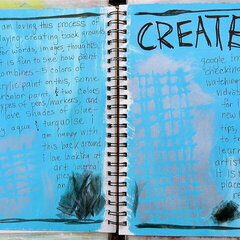 am loving this process of
laying, creating back grounds
for words, images, thoughts
is fun to see how paint
combines - 3 colors of
acrylic paint on this, some
watercolor paint & two colors
types of pens/markers, and
love shades of blue -
aqua & turquoise!
am happy with
this back ground
I love looking at
art journal
CREATE
google im
checking
watching
videos
for
new
tips,
to
learn
artist
It is
place
re